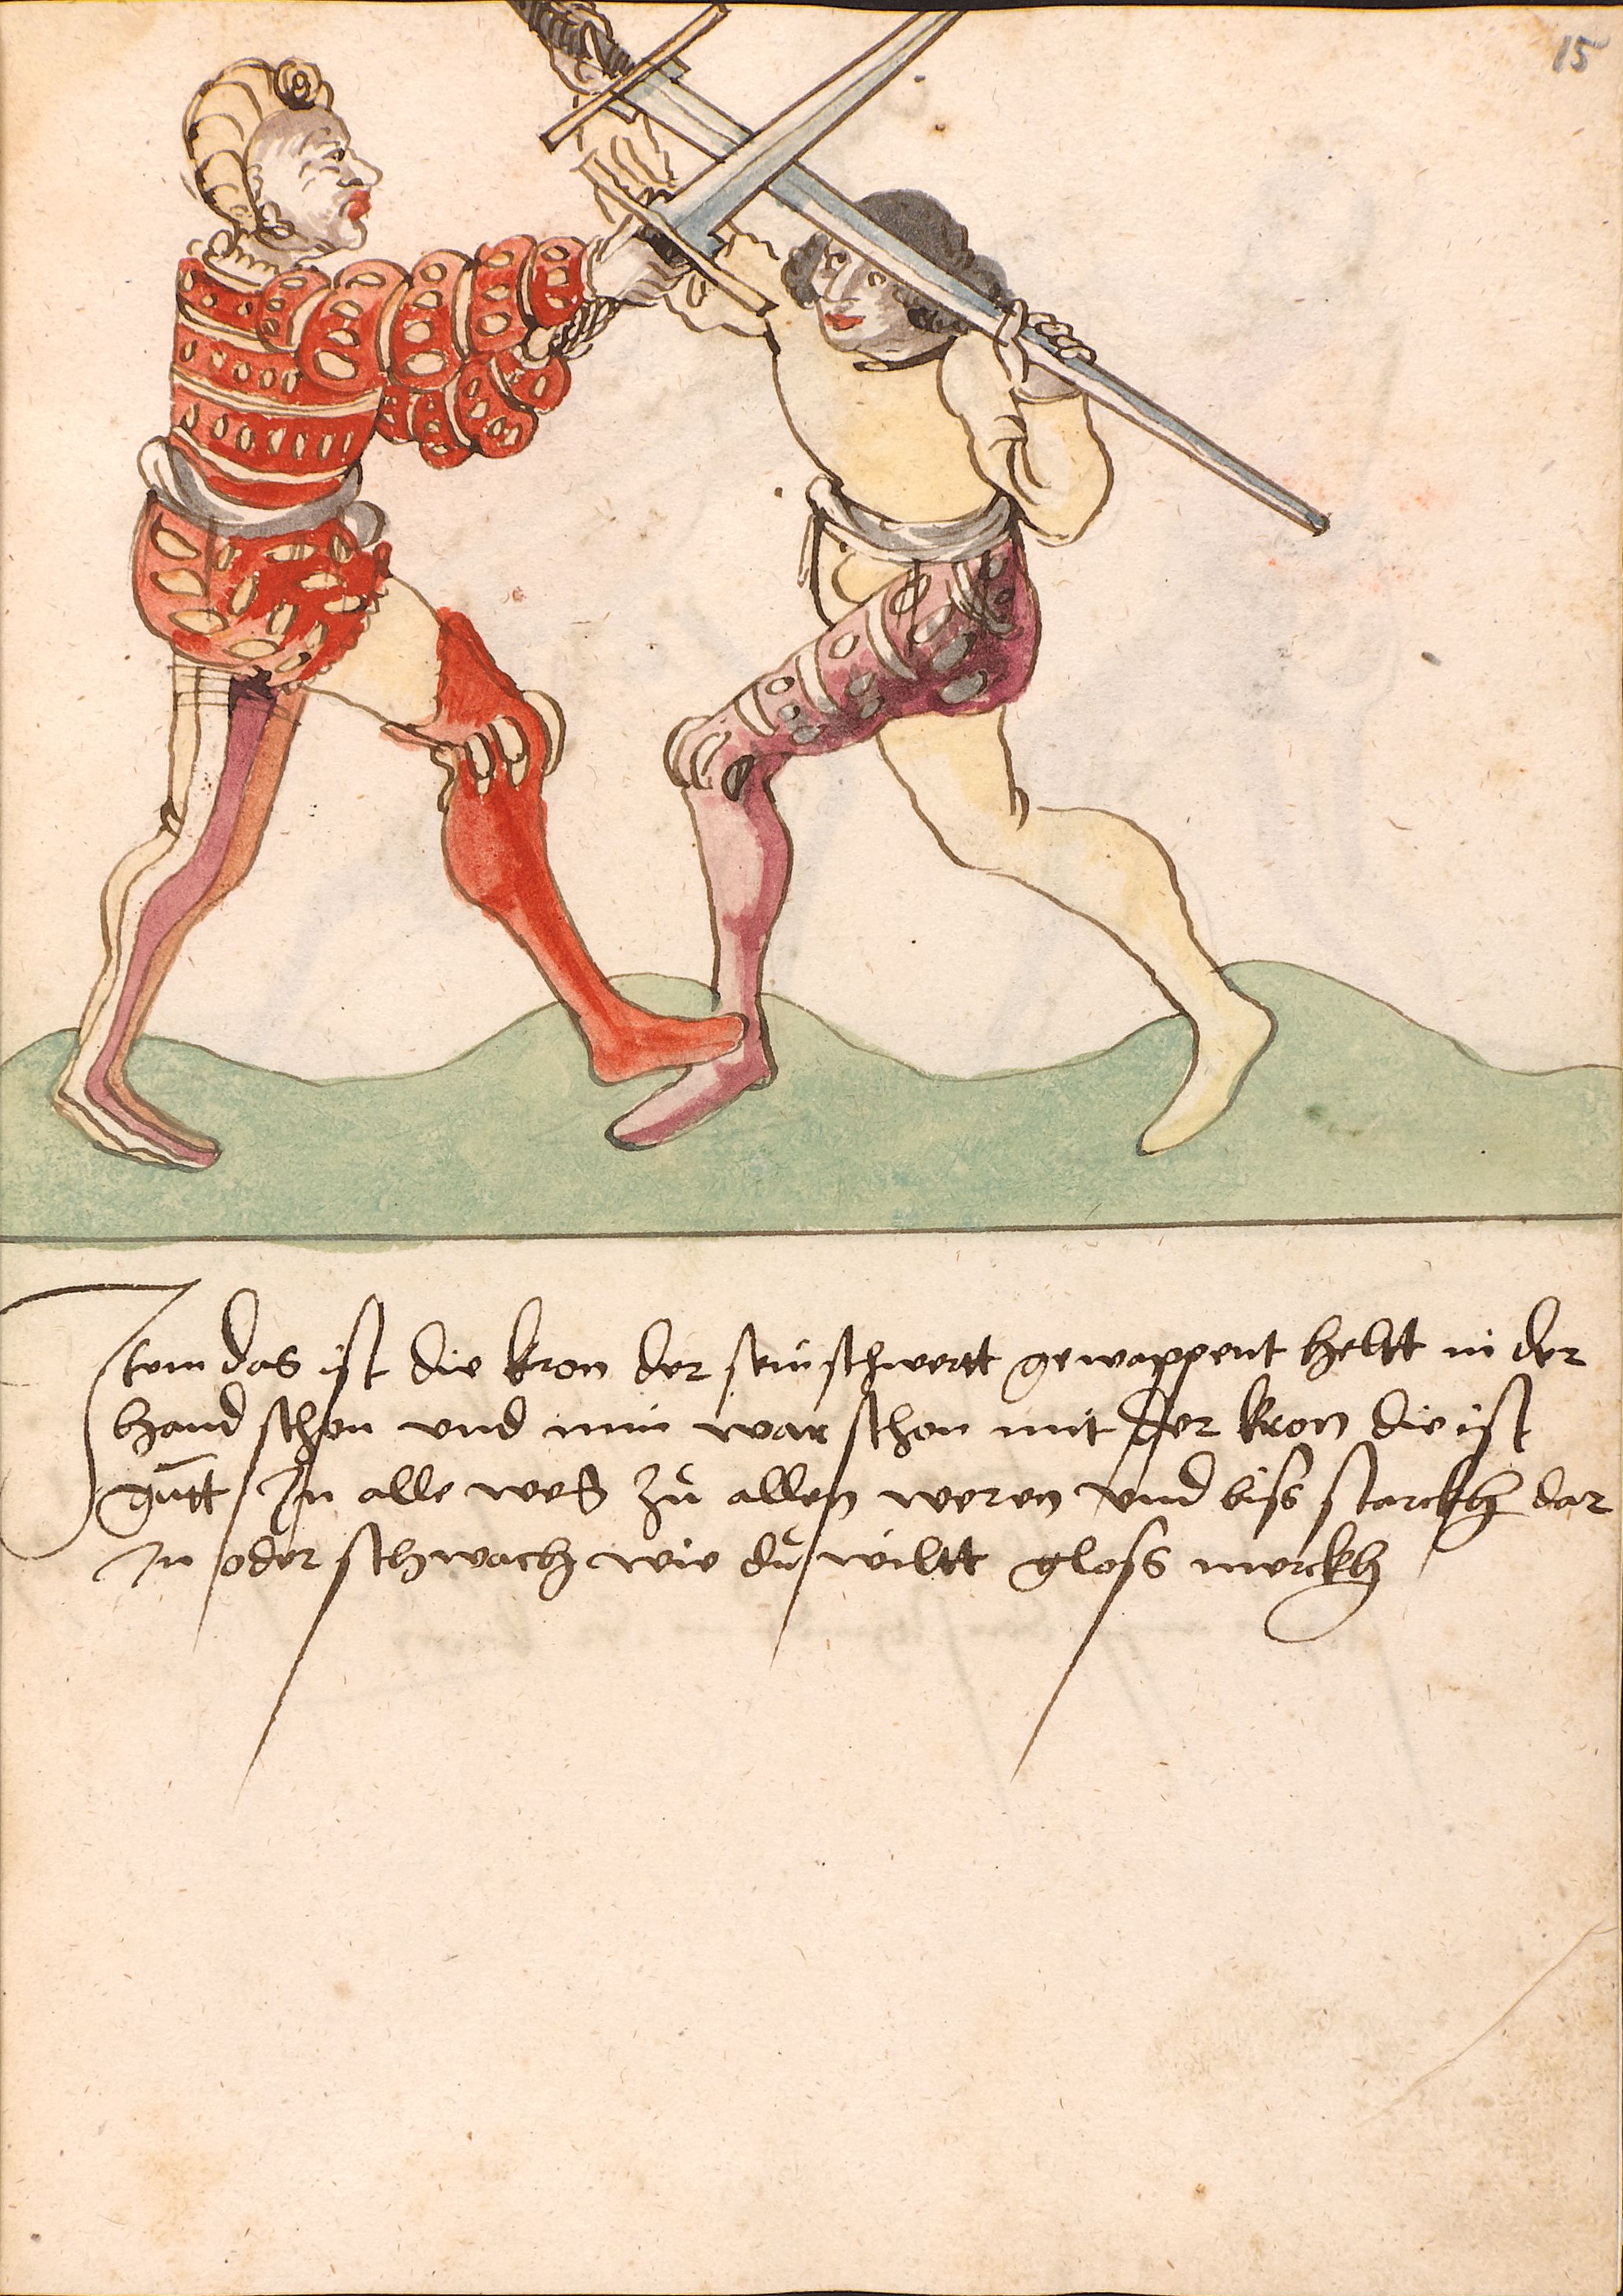 15
Item das ist die kron der sein schwertt gewappent heltt in der
hand schon vnd nim war schon mit der kron die ist
gutt In alle weß zů allen weren vnd biss starckh dar
In oder schwach wie dů wiltt gloss merckh